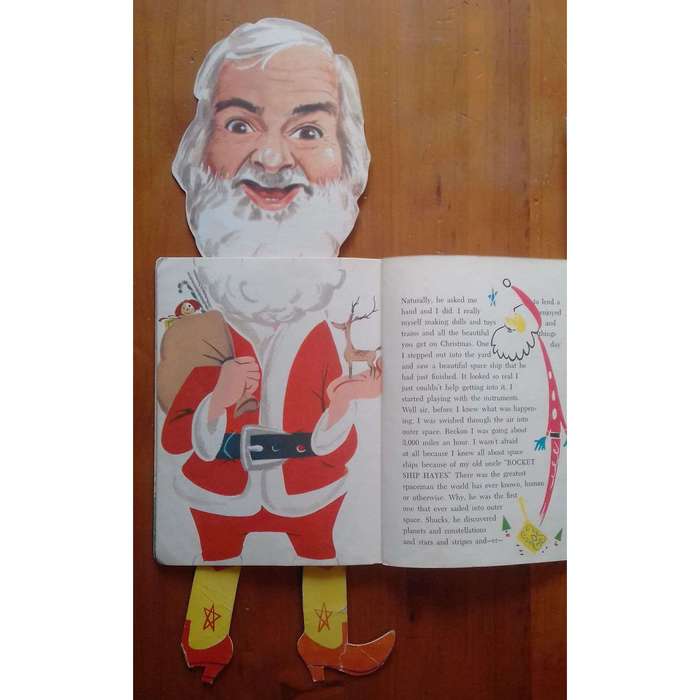 Naturally, he asked me to lend a
hand and I did. I really enjoyed
myself making dolls and toys and
trains and all the beautiful things
you get on Christmas. One day
I stepped out into the yard
and saw a beautiful space ship that he
had just finished. It looked so real I
just couldn't help getting into it. I
started playing with the instruments.
Well sir, before I knew what was happen-
ing, I was swished through the air into
outer space. Reckon I was going about
3,000 miles an hour. I wasn't afraid
at all because I knew all about space
ships because of my old uncle "ROCKET
SHIP HAYES." There was the greatest
spaceman the world has ever known, human
or otherwise. Why, he was the first
one that ever sailed into outer
space. Shucks, he discovered
planets and constellations
and stars and stripes and—er—